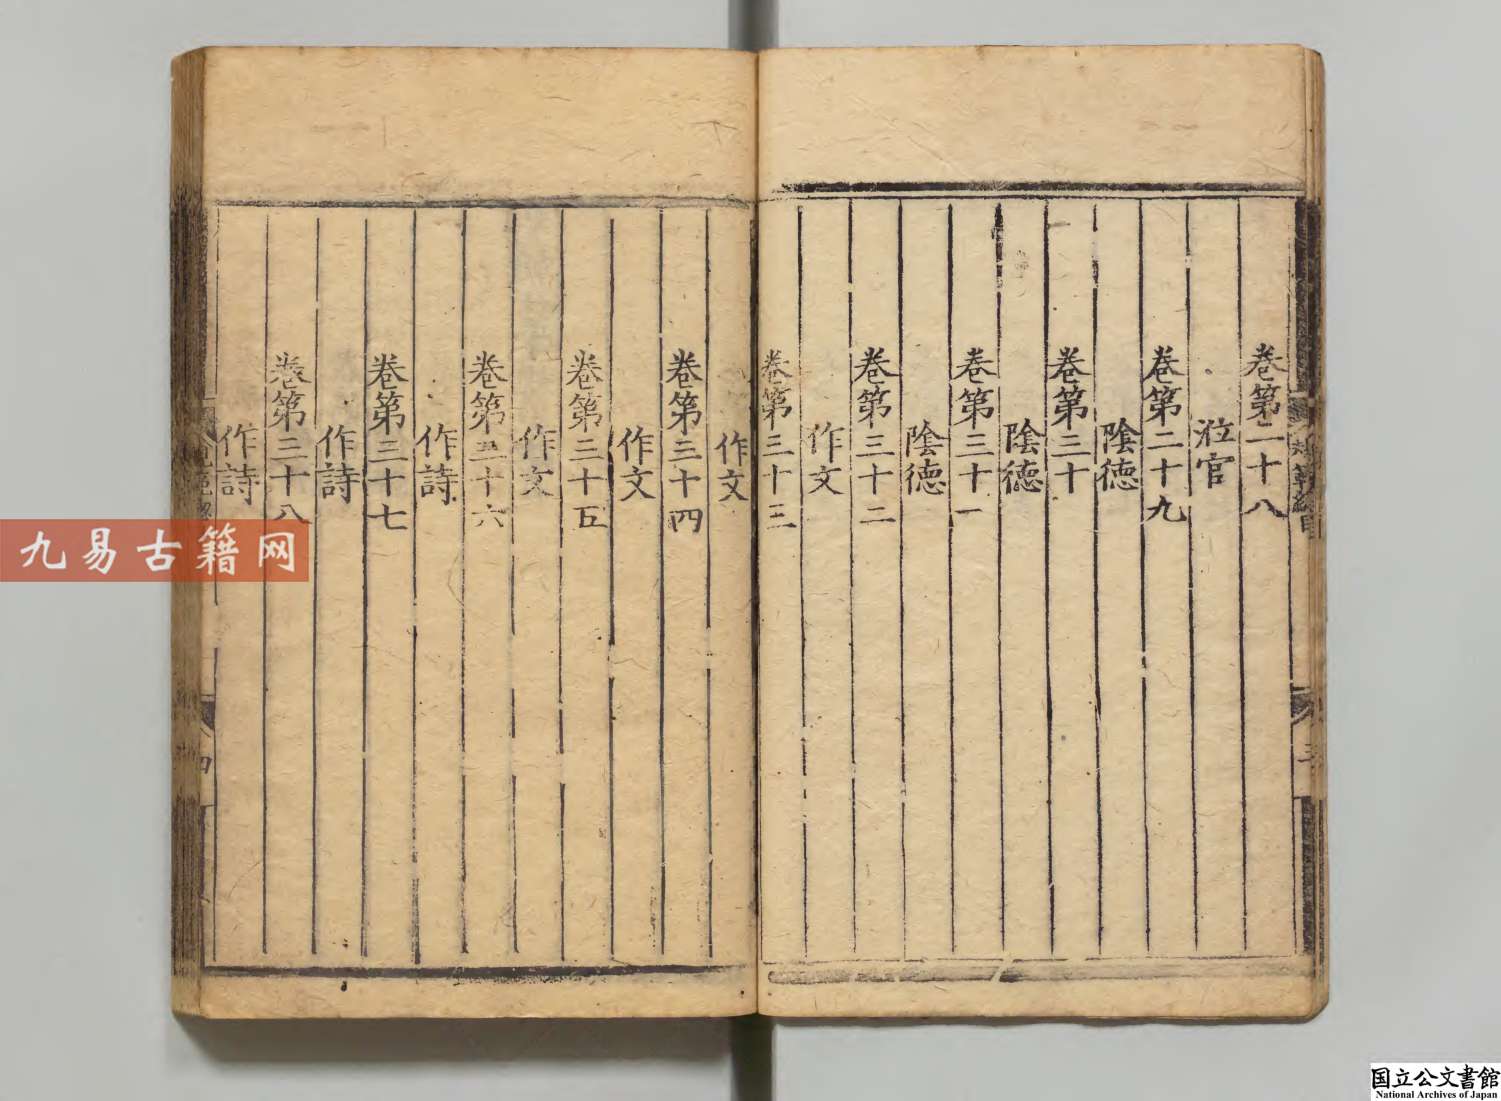 卷第二十八
涖官
卷第二十九
陰德
卷第三十
陰德
卷第三十一
陰德
卷第三十二
作文
卷第三十三
作文
卷第三十四
作文
卷第三十五
作文
卷第三十六
作詩
卷第三十七
作詩
卷第三十八
作詩
三
四
九易古籍网
国立公文書館
National Archives of Japan